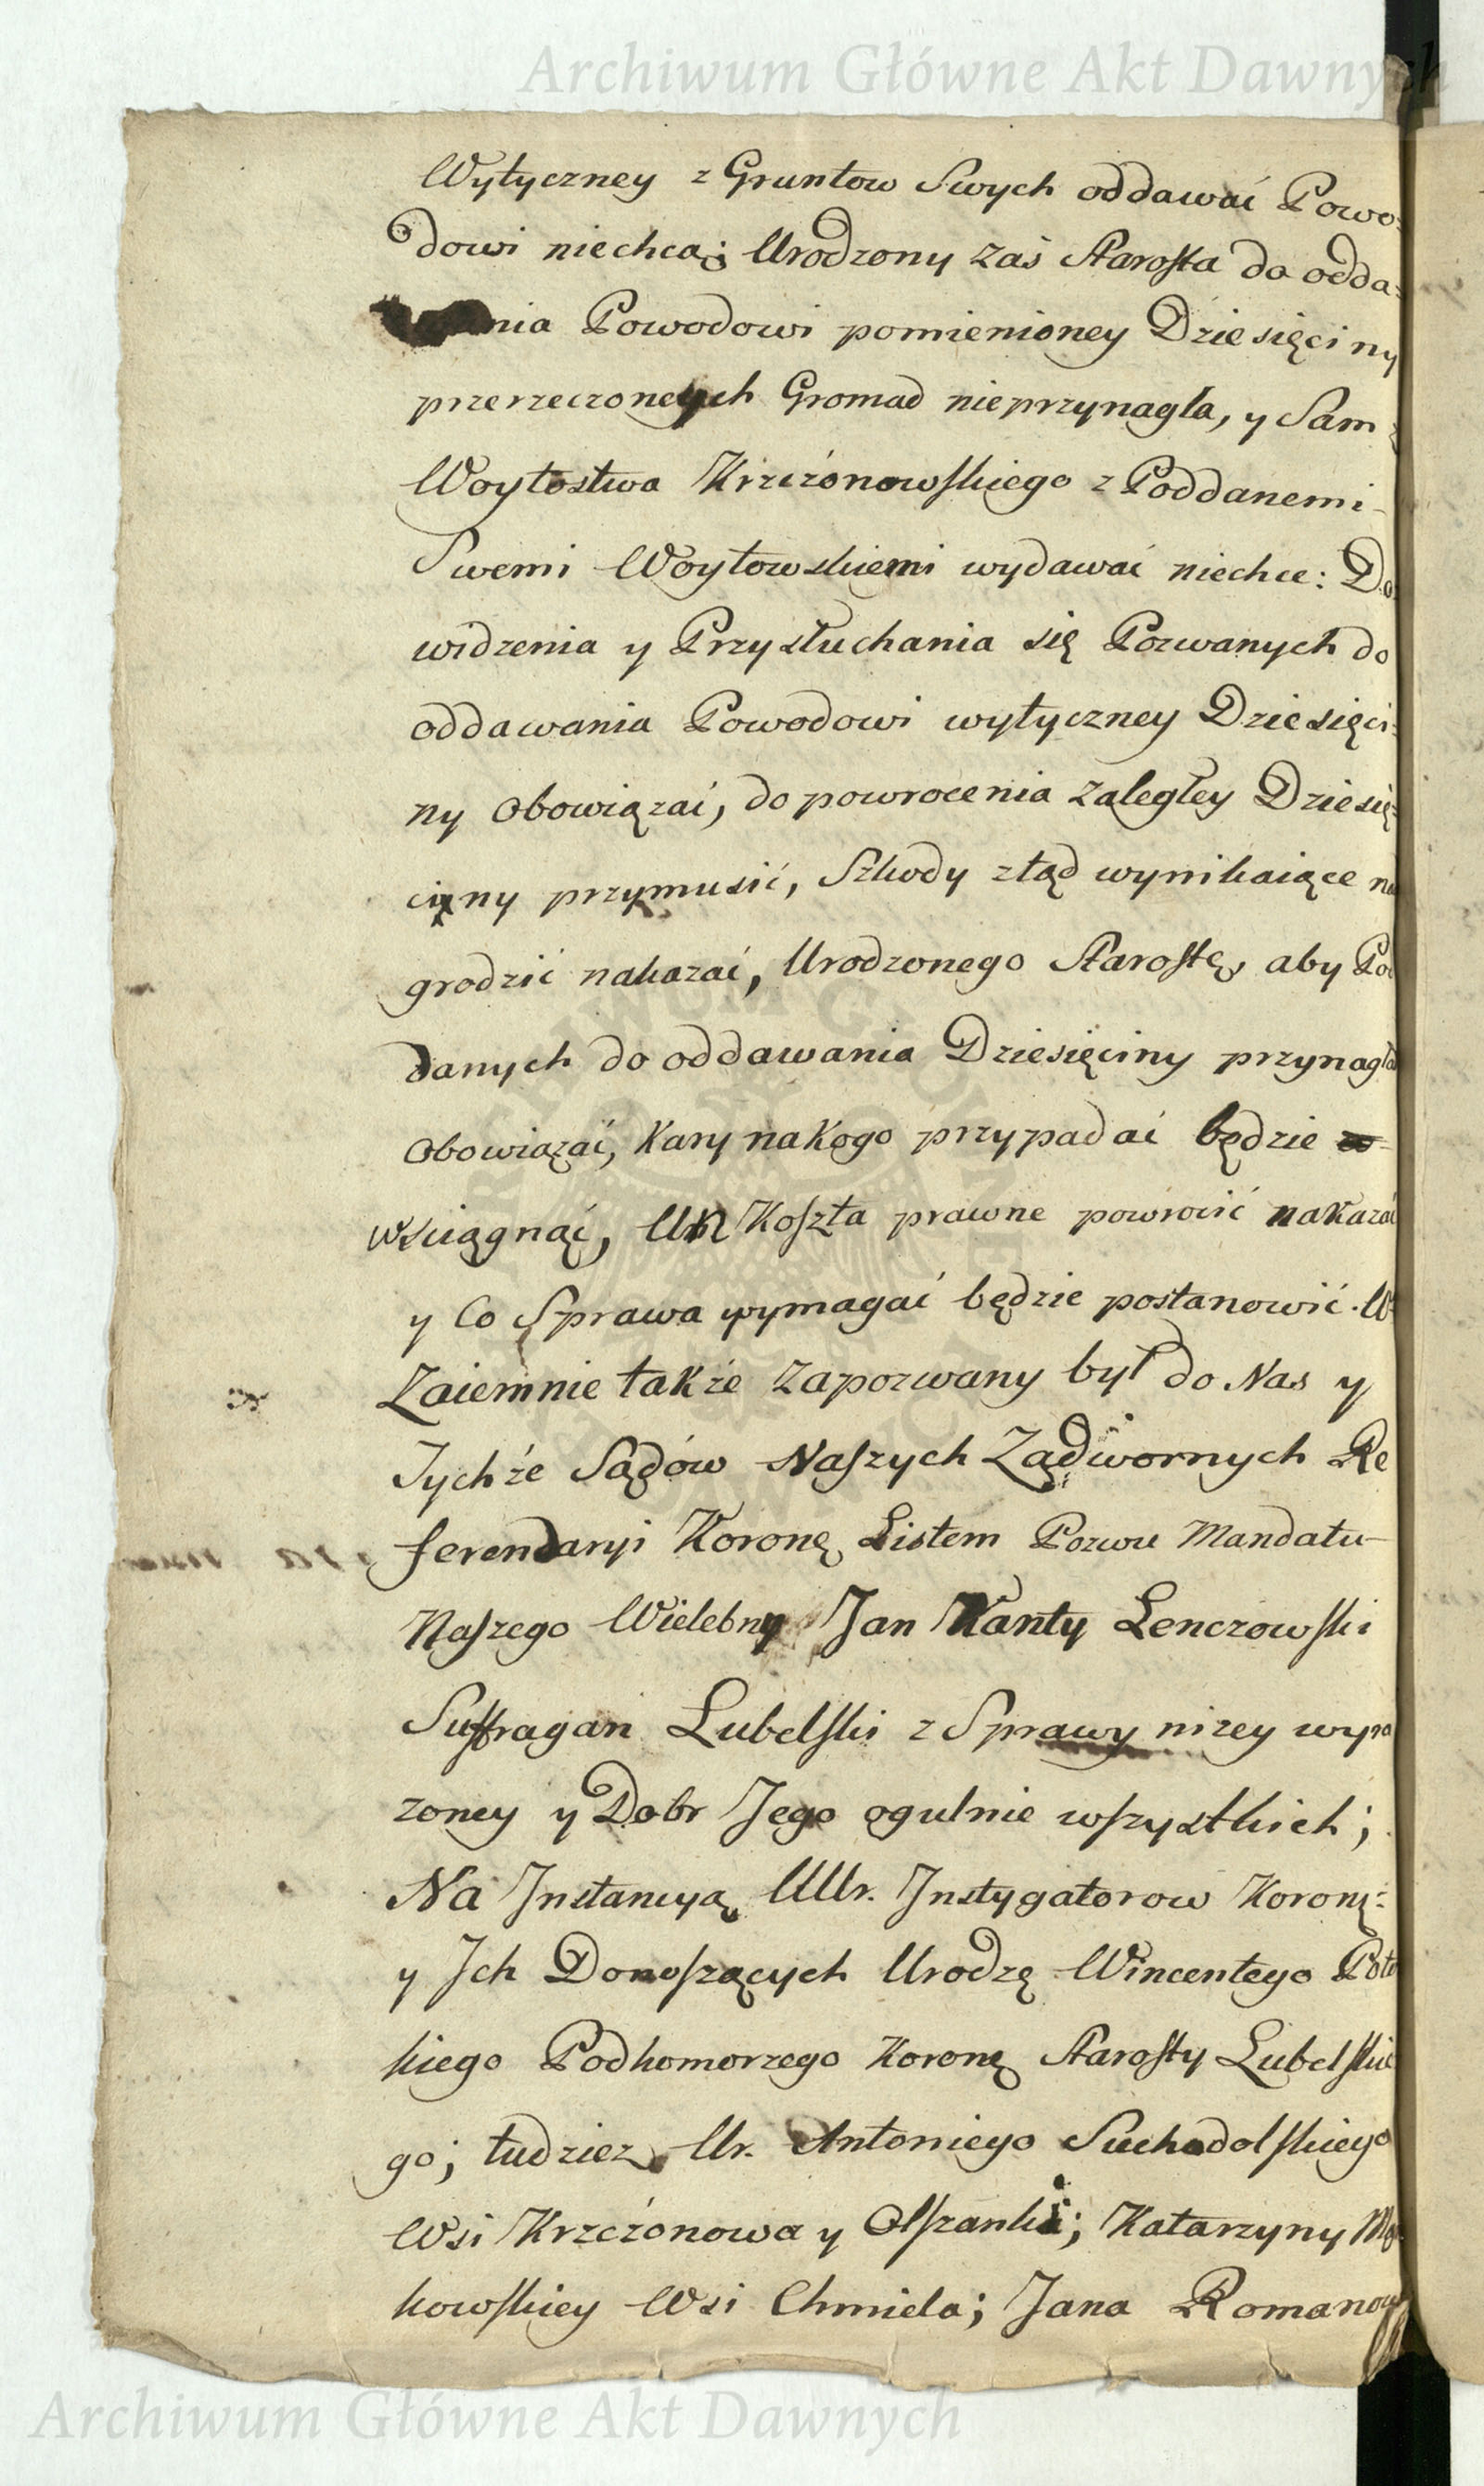 Archiwum Główne Akt Dawnych
Wytyczney z Gruntow Swych oddawać Powo=
dowi niechcą; Urodzony zaś Starosta do odda=
nia Powodowi pomienioney Dziesięciny
przerzeczonych Gromad nieprzynagla, y Sam z
Woytostwa Krzczonowskiego z Poddanemi
Swemi Woytowskiemi wydawać niechce: Do
widzenia y Przysłuchania się Pozwanych do
oddawania Powodowi wytyczney Dziesięci=
ny Obowiązać, do powrocenia zaległey Dziesię=
ciny przymusić, Szkody ztąd wynikaiące na
grodzić nakazać, Urodzonego Starostę, aby Pod
danych do oddawania Dziesięciny przynagla
Obowiązać, Kary na Kogo przypadać będzie
wsciągnąć, Koszta prawne powrocić nakazać
y Co Sprawa wymagać będzie postanowić. W
Zaiemnie także Zapozwany był do Nas y
Tychże Sądów Naszych Zadwornych Re
ferendaryi Koronę Listem Pozwu Mandatu
Naszego Wielebny Jan Kanty Lenczowski
Suffragan Lubelski z Sprawy niżey wyra
żoney y Dobr Jego ogulnie wszystkich;
Na Instancyą UUr. Instygatorow Koronę:
y Ich Donoszących Urodzę Wincentego Poto
kiego Podkomorzego Koronę Starosty Lubelskie
go; tudziez Ur. Antoniego Suchodolskiego
Wsi Krzczonowa y Olszanki; Katarzyny
kowskiey Wsi Chmiela; Jana Romanow
Archiwum Główne Akt Dawnych